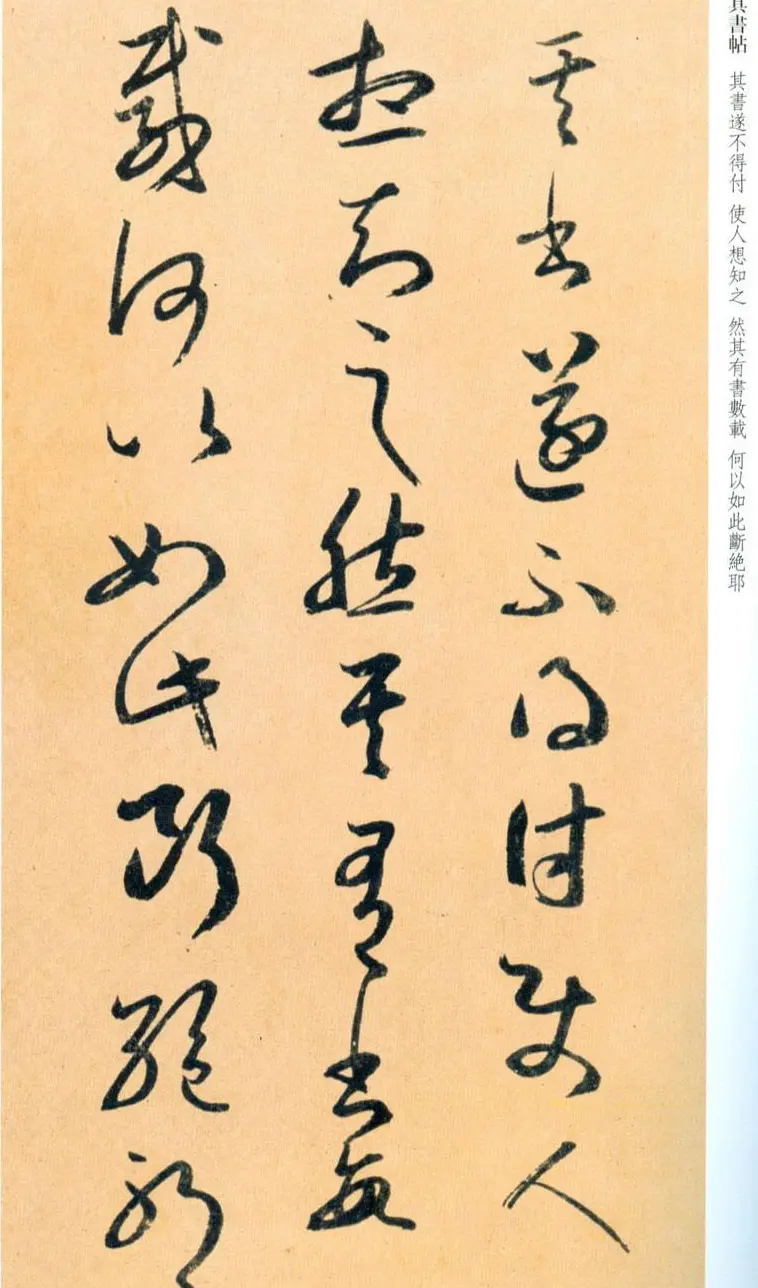 其書帖 其書遂不得付 使人想知之 然其有書數載 何以如此斷絶耶
其書遂不得付使人
想知之然其有書數
載何以如此斷絶耶